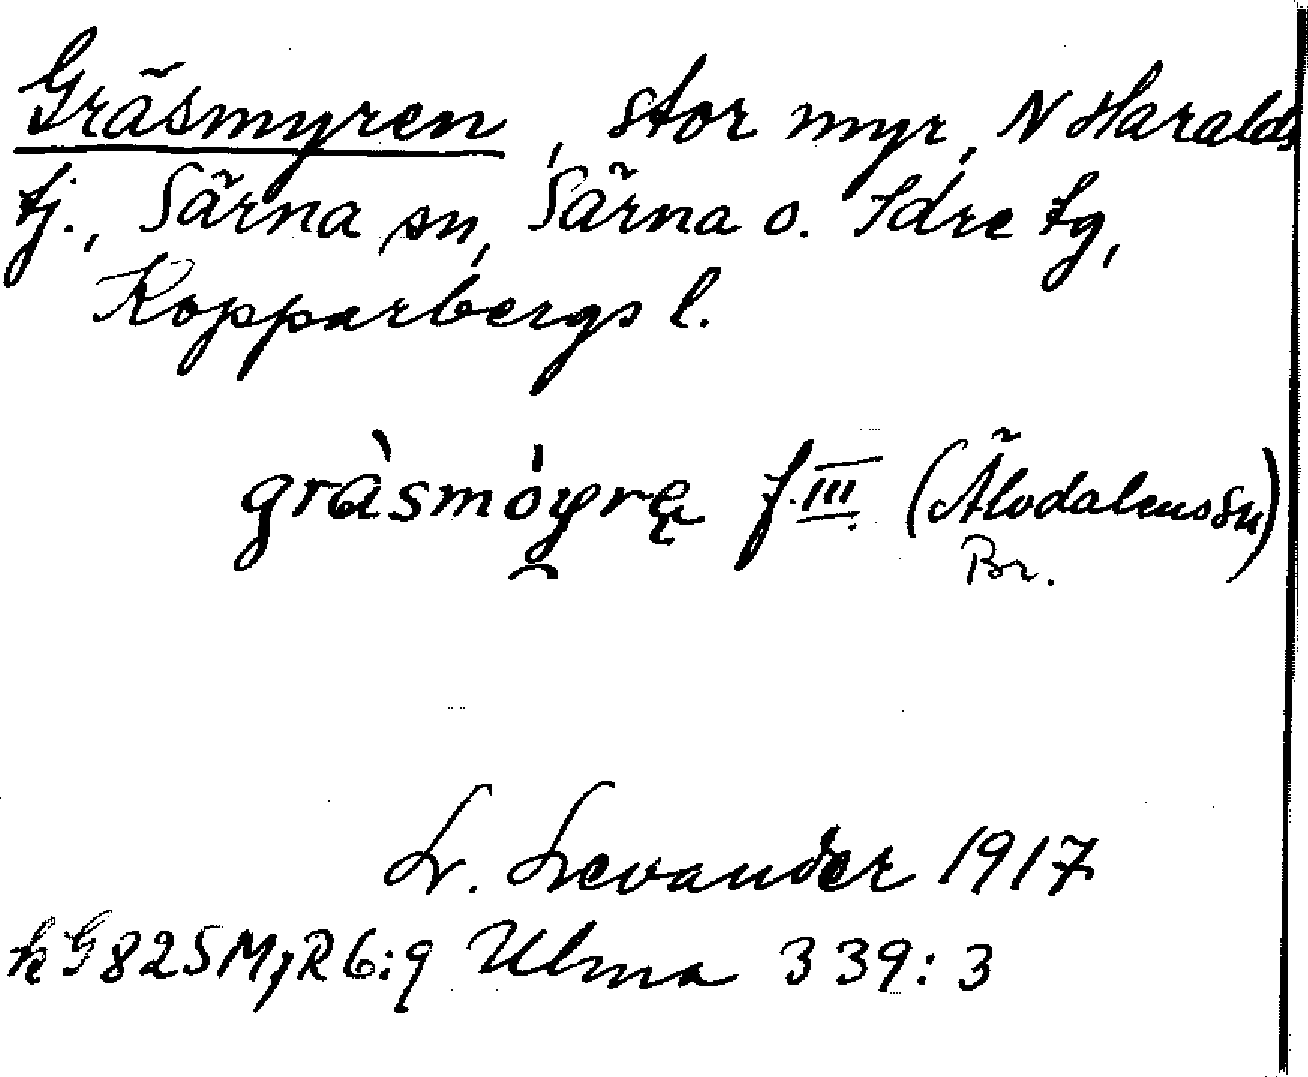 Gräsmyren, stor myr, N Haralds
tj., Särna sn, Särna o. Idre tg,
Kopparbergs l.
gràsmóyrę f. III. (Älvdalens sn)
Br.
L. Levander 1917
k G 825 My R 6:9 Ulma 339:3